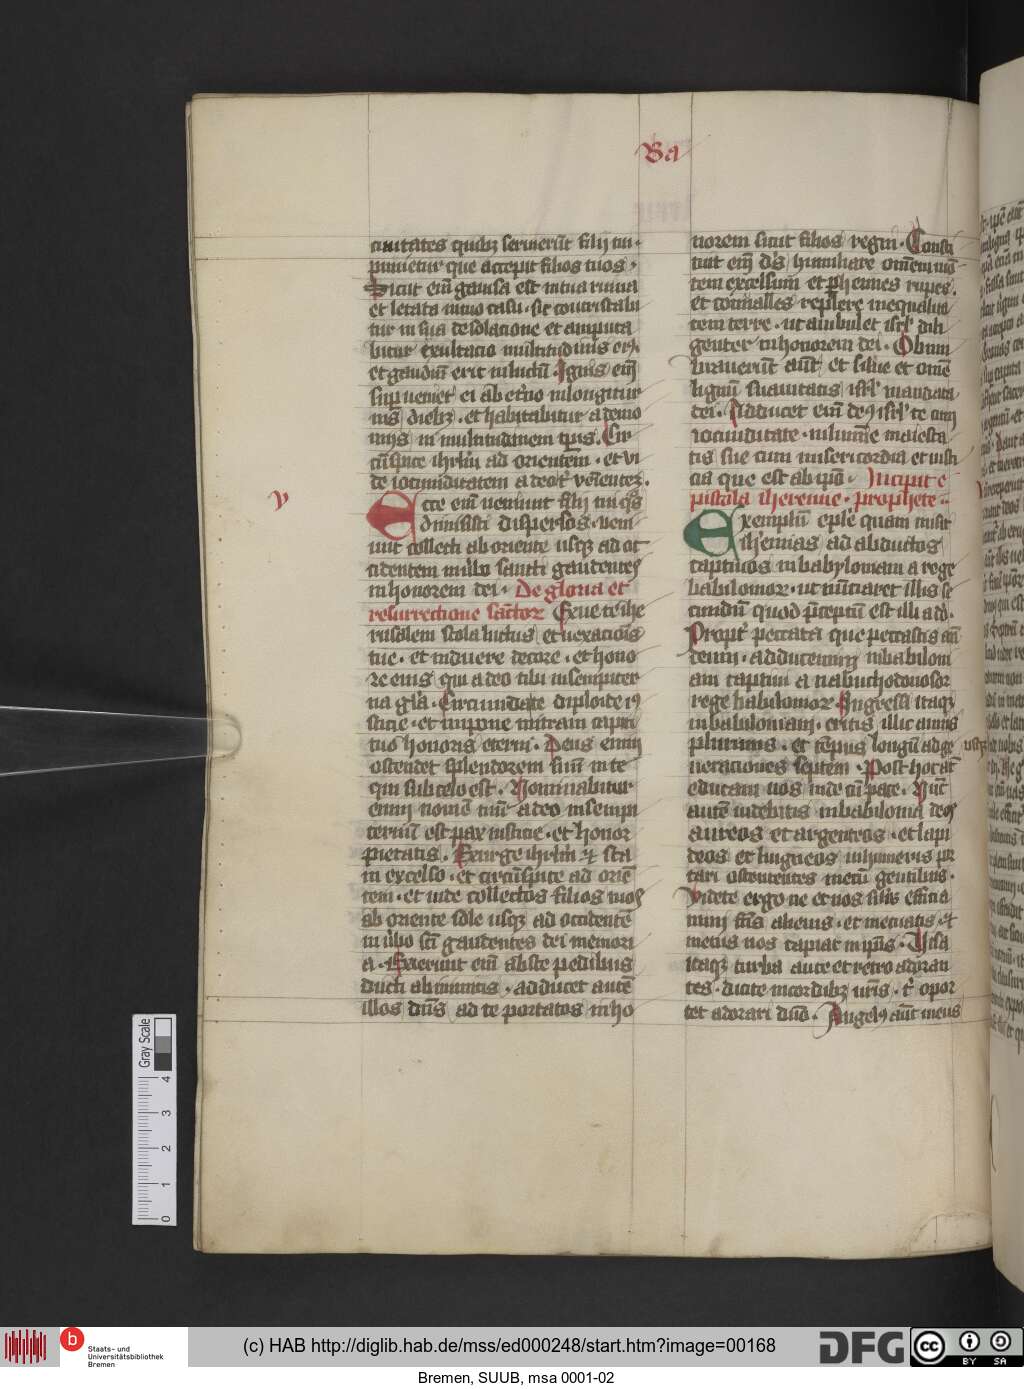 Ba
ciuitates quibꝫ seruierūt filij tui ·
punietur que accepit filios tuos ·
Sicut eī gauisa est in tua ruina
et letata in tuo casu · sic contristabi
tur in sua desolacione et amputa
bitur exultacio multitudinis eiꝰ ·
et gaudiū erit in luctū · Ignis eī
sup veniet ei ab et'no in longitur
nis diebꝫ · et habitabitur a demo
niis in multitudinem tp̄is · Cir
cūspice ihrl̄m ad orientem · et vi
de iocunditatem a deo t' venientez ·
v
Ecce eī veniunt filij tui q̄s
dimisisti dispersos · veni
unt collecti ab oriente usqꝫ ad oc
cidentem in v̓bo sancti gaudentes
in honorem dei · De gloria et
resurrectione sāctor Exue te ihe
rusalem stola luctus et uexacionis
tue · et induere decore · et hono
re eius qui a deo tibi in sempiter
na gl̄a · Circumdate diploide iꝰ
sticie · et impone mitram capiti
tuo honoris eterni · Deus enim
ostendet splendorem suū in te
qui sub celo est · Nominabitur
enim nomē tuū a deo in sempi
ternū est pax iusticie · et honor
pietatis · Exurge ihrl̄m ⁊ sta
in excelso · et circūspice ad oriē
tem · et vide collectos filios tuos
ab oriente sole usqꝫ ad occidentē
in v̓bo sc̄i gaudentes dei memori
a · Exierunt eī abste pedibus
ducti ab inimicis · adducet autē
illos dn̄s ad te portatos in ho
norem sicut filios regni · Consti
tuit eī ds̄ humiliare omnem mō
tem excelsum et p̲hennes rupes ·
et conualles replere in equalita
tem terre · ut ambulet isrl̄ dili
genter in honorem dei · Obum
brauerūt aūt et silue et omē
lignū suauitatis isrl̄ mandata
dei · Adducet eī deꝰ isrl̄ te cum
iocunditate · in lumīe maiesta
tis sue cum misericordia et iusti
cia que est ab ip̄o · Incipit e
pistola iheremie · prophete ··
Exemplū epl̄e quam misit
iheremias ad abductos
captiuos in babyloniam a rege
babilonior · ut nūciaret illis se
cundū quod p̄ceptū est illi a dō ·
Propt' peccata que peccastis an̄
deum · adducemini in babiloni
am captiui a nabuchodonosor
rege babilonior Ingressi itaqꝫ
in babiloniam · eritis illic annis
plurimis · et tēpus longū ad ge
neraciones septem · Post hoc aūt
educam uos inde cū pace · Nūc
autē uidebitis in babilonia deos
aureos et argenteos · et lapi
deos et ligneos in humeris por
tari ostentantes metū gentibus ·
Videte ergo ne et uos sil̄es effitia
mini fc̄is alienis · et metuatis · ⁊
metus uos capiat in ip̄is · Uisa
itaqꝫ turba a retro adoran
tes · dicite in cordibꝫ ur̄is · t' opor
tet adorari dn̄e · Angelꝰ aūt meus
Gray Scale
0 1 2 3 4
b
Staats- und
Universitätsbibliothek
Bremen
(c) HAB http://diglib.hab.de/mss/ed000248/start.htm?image=00168
DFG
cc
BY SA
Bremen, SUUB, msa 0001-02